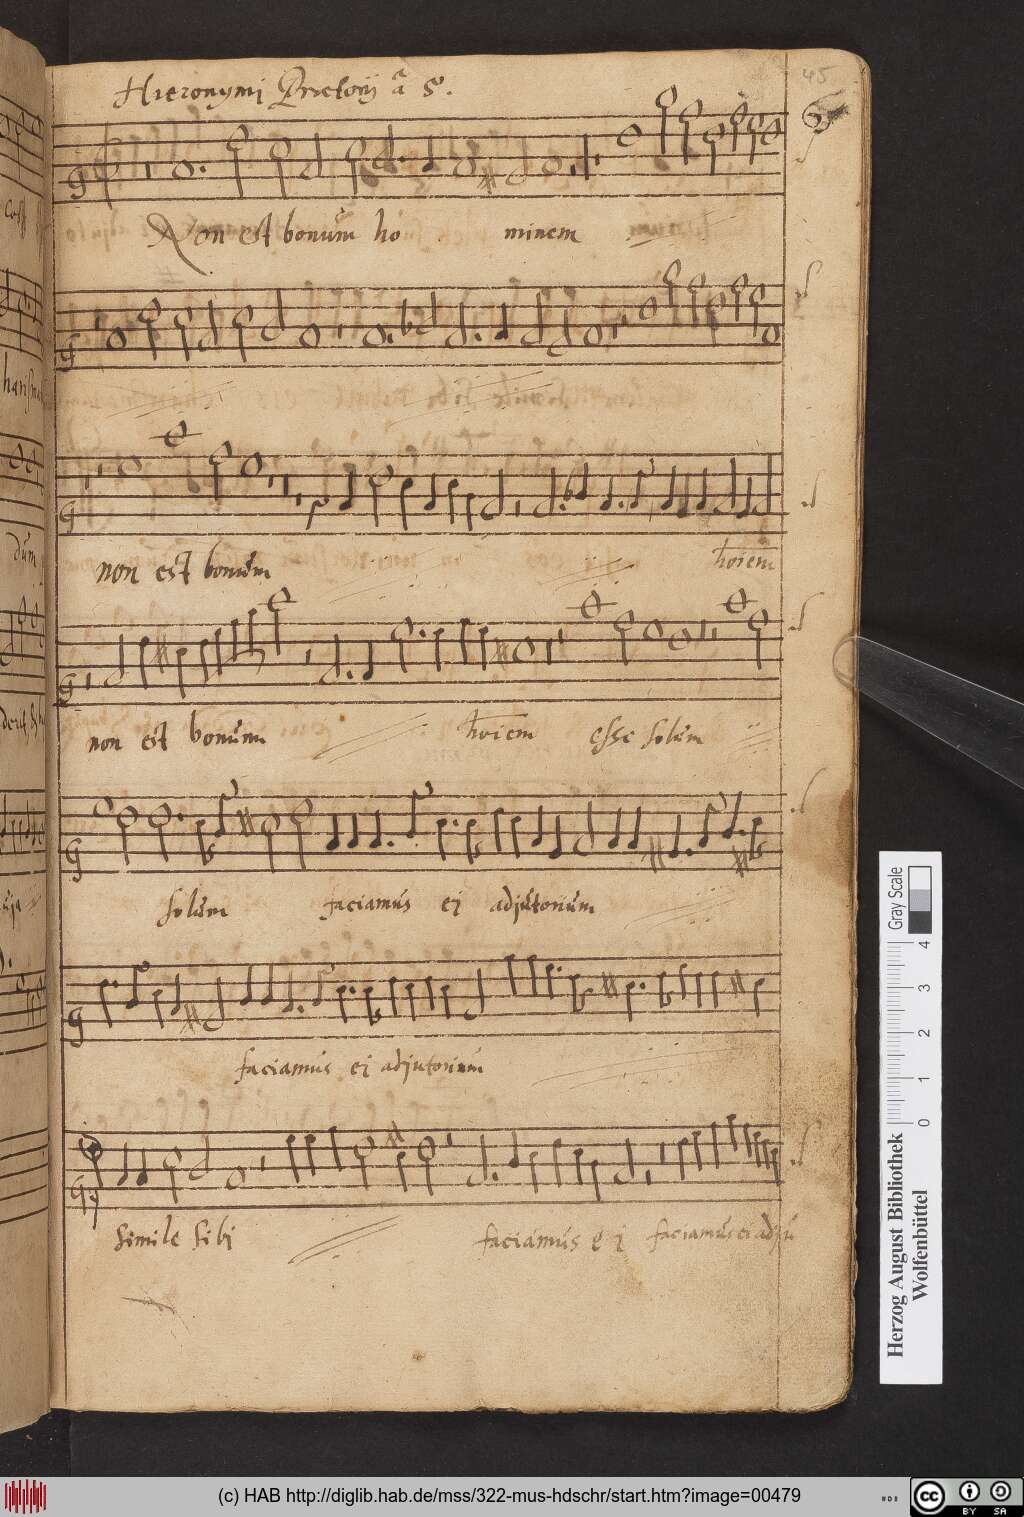 Hieronymi Prætorij â 8.
45
Non est bonum ho minem
non est bonum hoiem
non est bonum hoiem esse solum
solum faciamus ej adjutorium
faciamus ei adjutorium
simile sibi faciamus ei faciamus ei adju
dum
Gray Scale
0 1 2 3 4
Herzog August Bibliothek
Wolfenbüttel
(c) HAB http://diglib.hab.de/mss/322-mus-hdschr/start.htm?image=00479
cc BY SA